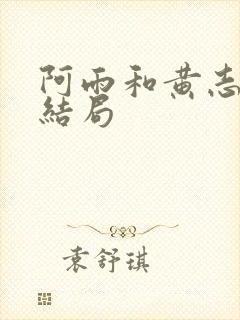 阿雨和黄志
結局
袁舒琪